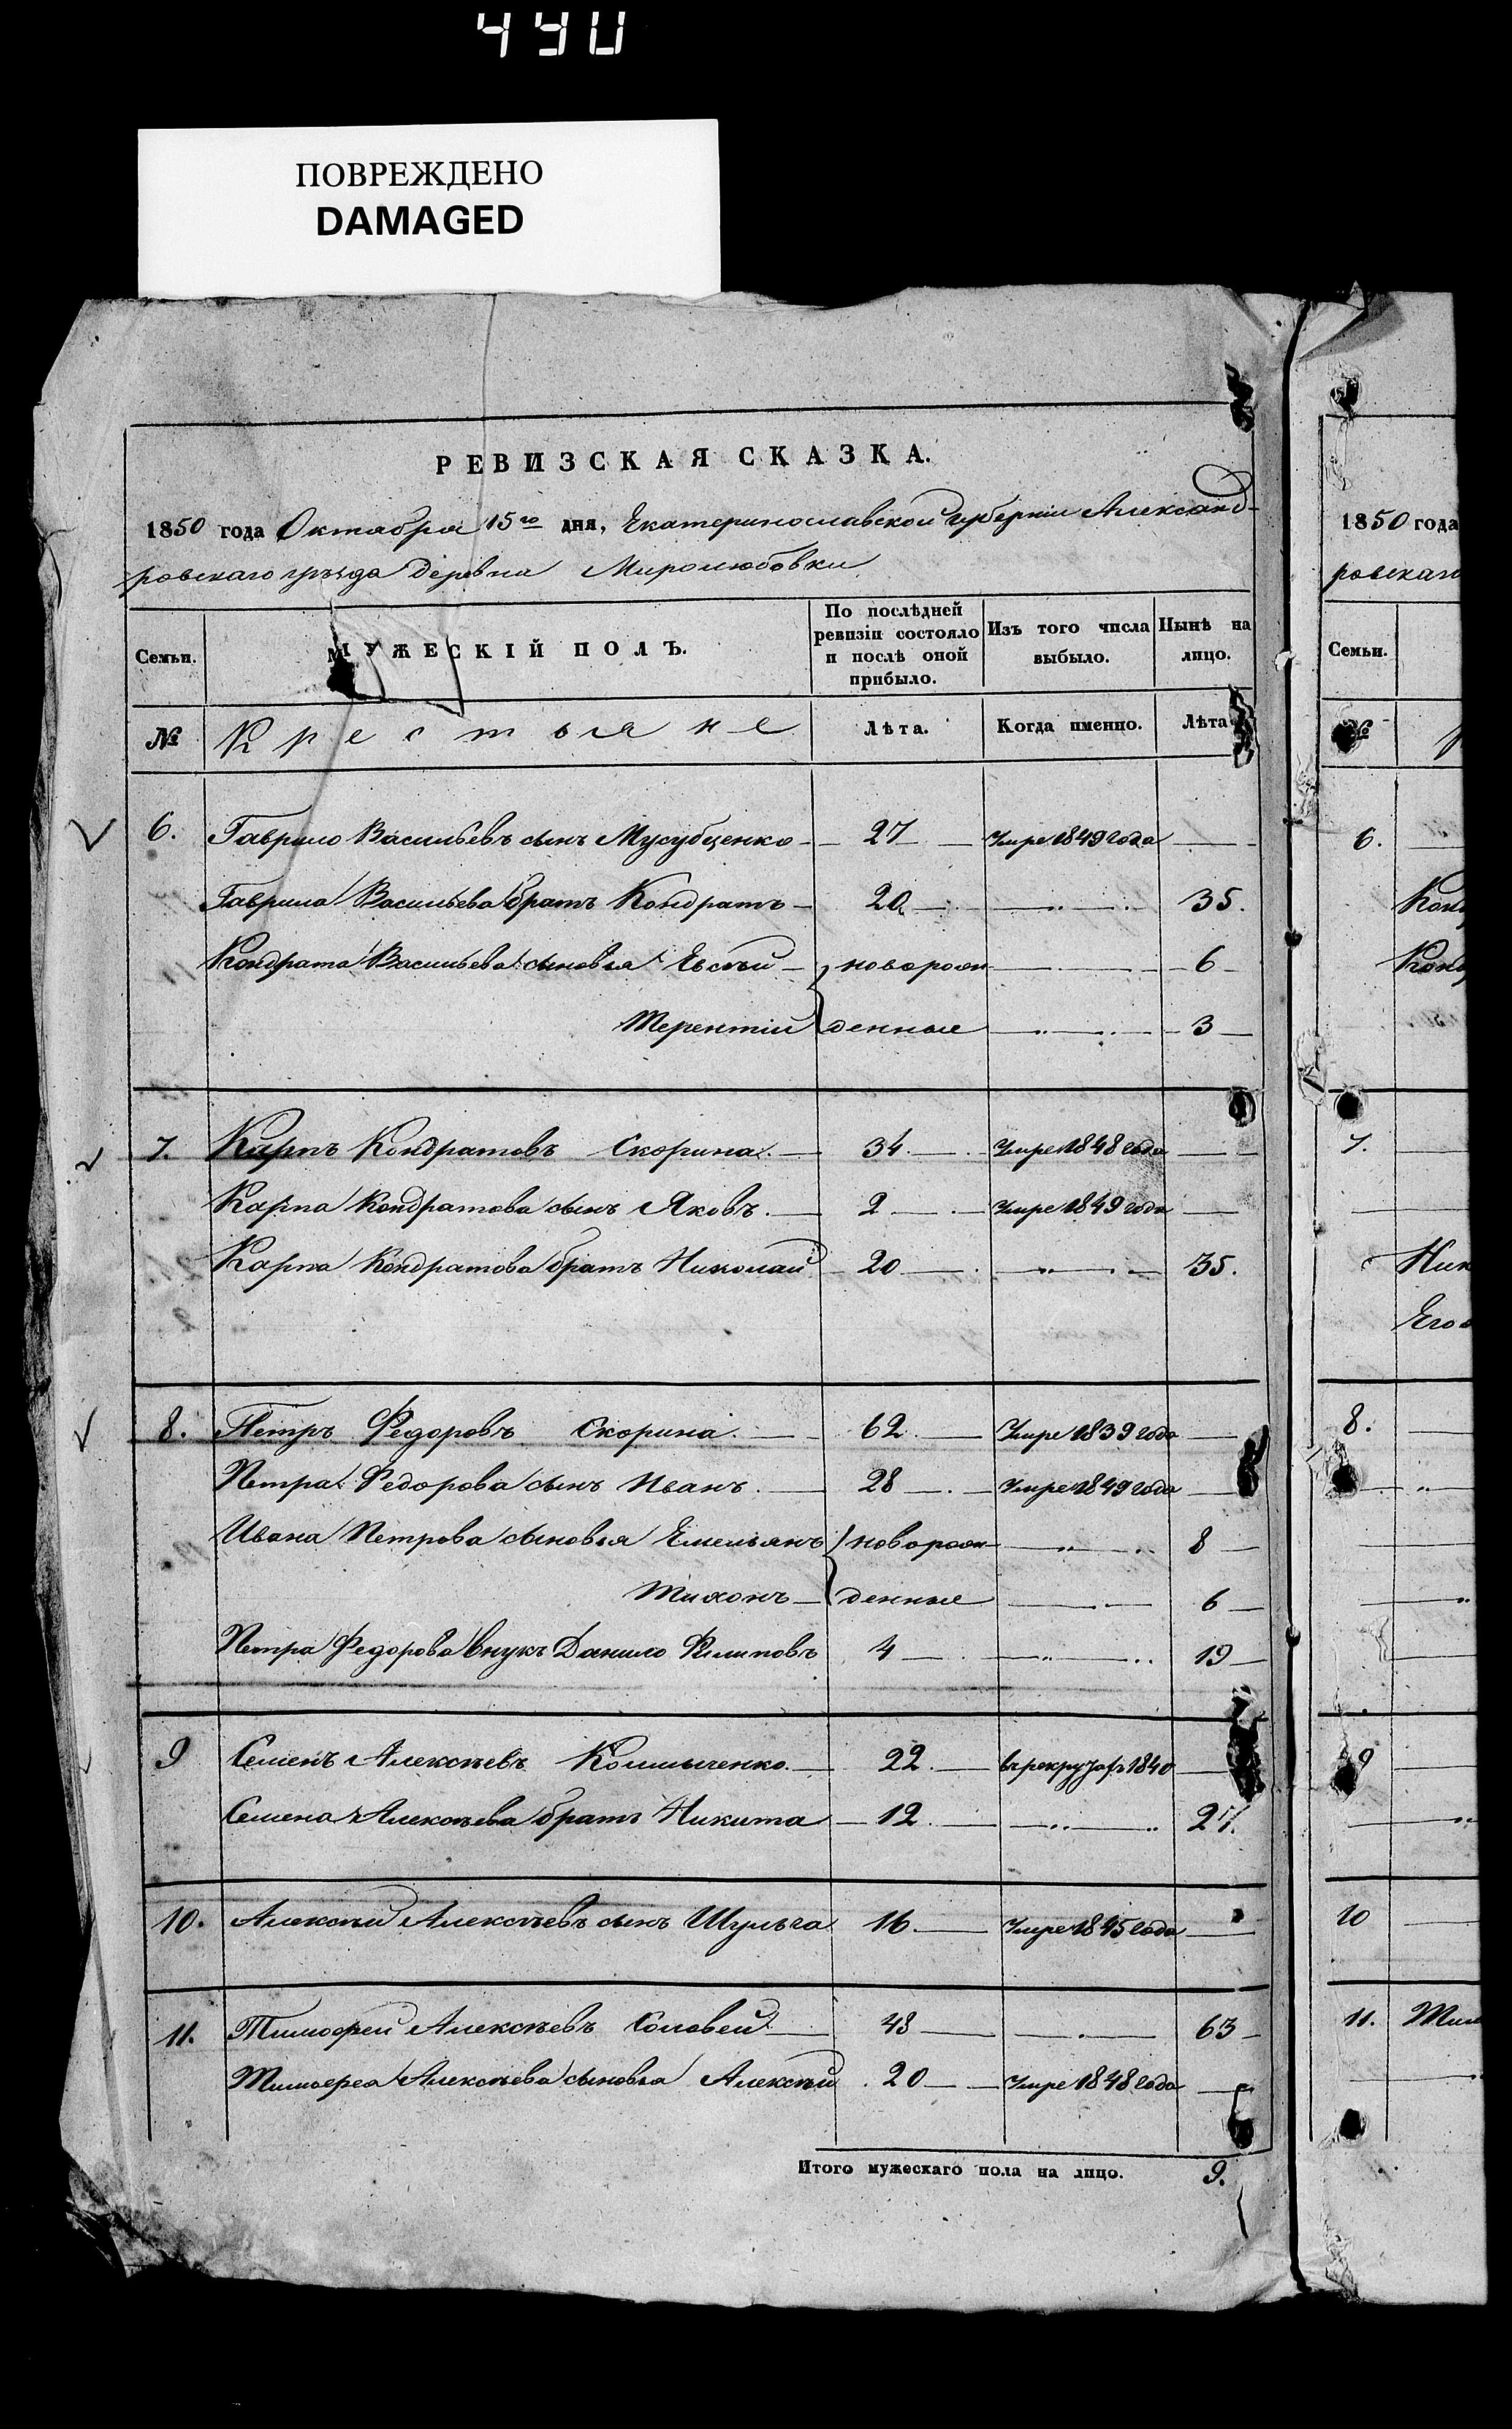 490
ПОВРЕЖДЕНО
DAMAGED
РЕВИЗСКАЯ СКАЗКА.
1850 года Октября 15го дня, Екатеринославской губерніи Александ-
ровскаго уѣзда деревни Миролюбовки
Семьи. МУЖЕСКІЙ ПОЛЪ. По послѣдней ревизіи состояло и послѣ оной прибыло. Изъ того числа выбыло. Нынѣ на лицо.
№ Крестьяне Лѣта. Когда именно. Лѣта
6. Гаврило Васильевъ сынъ 27 Умре 1849 года
Гаврила Васильева братъ Кондратъ 20 35.
Кондрата Васильева сыновья Евсѣй новорож 6
Терентій денные 3
7. Карпъ Кондратовъ Скорина. 34. Умре 1848 года
Карпа Кондратова сынъ Яковъ. 2 Умре 1849 года
Карпа Кондратова братъ Николай 20 35.
8. Петръ Федоровъ Скорина. 62. Умре 1839 года
Петра Федорова сынъ Иванъ. 28 Умре 1849 года
Ивана Петрова сыновья Емельянъ новорож 8
Тихонъ денные 6
Петра Федорова внукъ Данило Филиповъ 4 19
9 Семенъ Алексѣевъ 22. въ рекруты 1840
Семена Алексѣева братъ Никита 12. 27.
10. Алексѣй Алексѣевъ сынъ Шульга 16. Умре 1845 года
11. Тимофей Алексѣевъ Соловей 48 63
Тимофея Алексѣева сыновья Алексѣй 20 Умре 1848 года
Итого мужескаго пола на лицо. 9.
1850 года
ровскаго
Семьи.
№
6.
Конд
Конд
7.
Ник
Его
8.
9
10
11. Тим